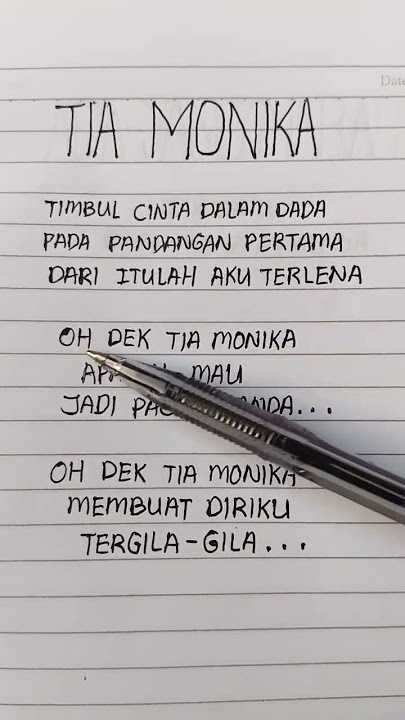 Date
TIA MONIKA
TIMBUL CINTA DALAM DADA
PADA PANDANGAN PERTAMA
DARI ITULAH AKU TERLENA
OH DEK TIA MONIKA
MAU
JADI
OH DEK TIA MONIKA
MEMBUAT DIRIKU
TERGILA-GILA...